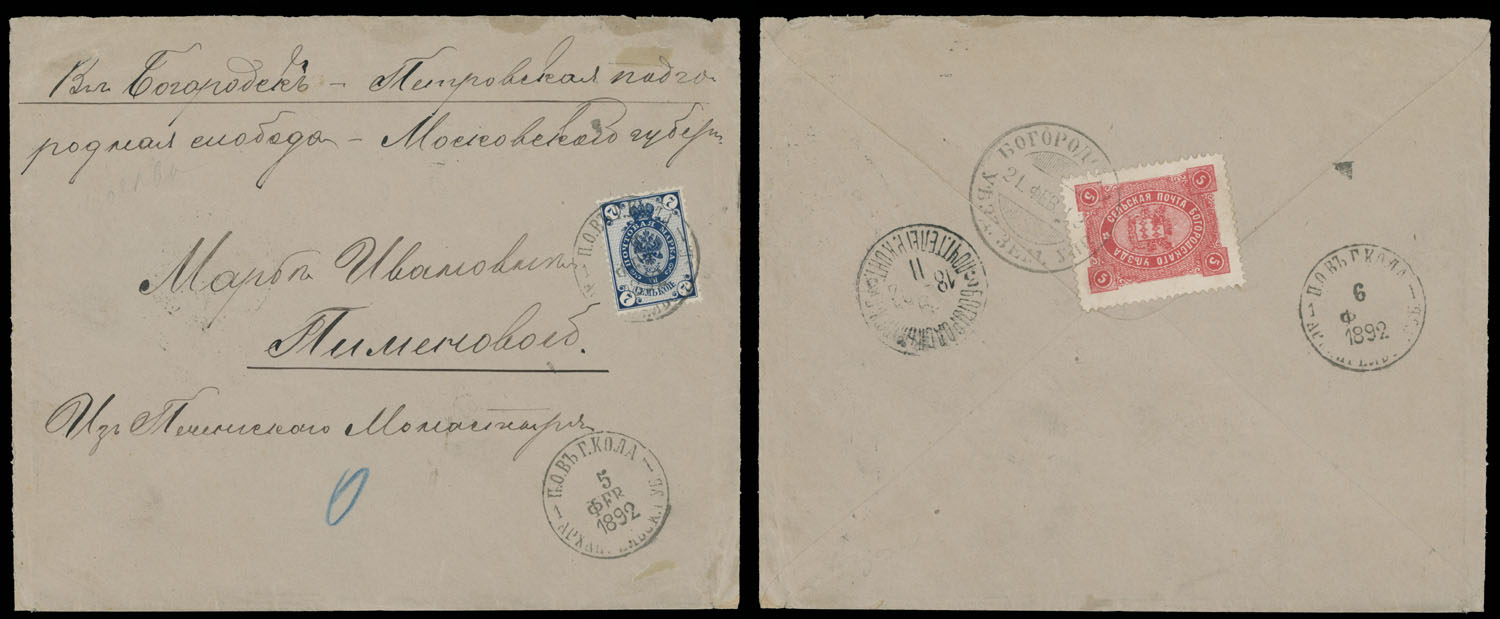 Въ Богородскъ – Петровская подго-
родная слобода – Московскаго губерн.
Марьѣ Ивановнѣ
Пименовой.
Изъ Печенгскаго Монастыря
0
7 7
ПОЧТОВАЯ МАРКА
СЕМЬ КОП
7 7
П.О.ВЪ
П.О.ВЪ Г.КОЛА
5
ФЕВ
1892
БОГОРОДС
21 ФЕВ
УѢЗ. ЗЕМ.
5 5
СЕЛЬСКАЯ ПОЧТА БОГОРОДСКАГО УѢЗДА
5 5
18
II
П.О.ВЪ Г.КОЛА
6
Ф
1892